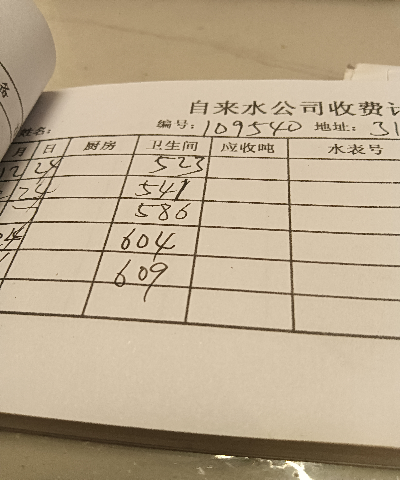 自来水公司收费
姓名: 编号: 109540 地址: 31
月 日 厨房 卫生间 应收吨 水表号
12 24 523
24 541
586
604
609